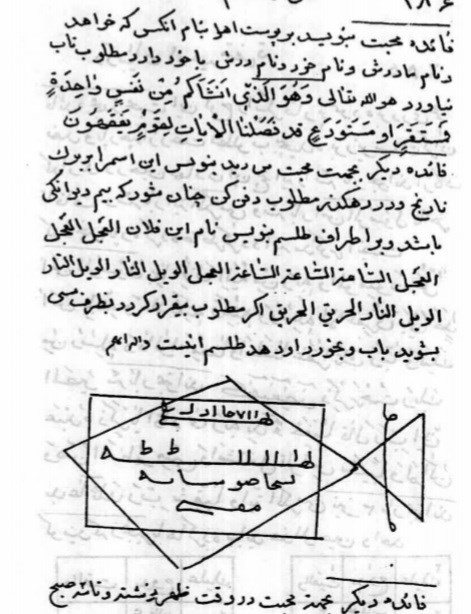 ۲۸۶
فائده محبت بنویسد بر پوست اهو بنام انکس که خواهد
و نام مادرش و نام خود و نام درش با خود دارد مطلوب تاب
نیاورد هو الله تعالی وَهُوَ الَّذِي اَنْشَاَكُمْ مِنْ نَفْسٍ وَاحِدَةٍ
فَمُسْتَقَرٌ وَ مُسْتَوْدَعٍ قد فَصَّلْنَا الْاٰيَاتِ لِقَوْمٍ يَفْقَهُونَ
فائده دیکر بجهت محبت بنویس این اسم را بر برك
نارنج و در رهکذر مطلوب دفن کن چنان شود که بیم دیوانکی
باشد و بر اطراف طلسم بنویس نام این فلان العجل العجل
العجل الساعة الساعة الساعة العجل الویل النار الویل النار
الویل النار الحریق الحریق اکر مطلوب بیقرار کردد بظرف مسی
بشوید باب و بخورد او دهد طلسم اینست
فائده دیکر بجهة محبت در وقت ظهر نوشته و تا شد صبح